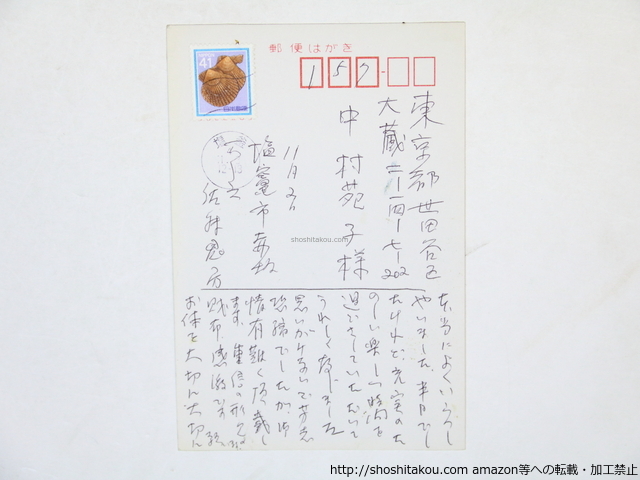 郵便はがき
41
日本郵便
157
東京都世田谷区
大蔵二ー一四ー七ー202
中村苑子様
11月2日
塩竈市赤坂
佐藤鬼房
本当によくいらっし
やいました。半日でし
たけれど、充実のた
のしい楽しい時間を
過ごさしていただいて
うれしく存じました
思いがけないで芳志
恐縮でしたが、御
情有難く頂戴し
ます。
財布感激です。
お体を大切に大切に
shoshitakou.com
http://shoshitakou.com amazon等への転載・加工禁止